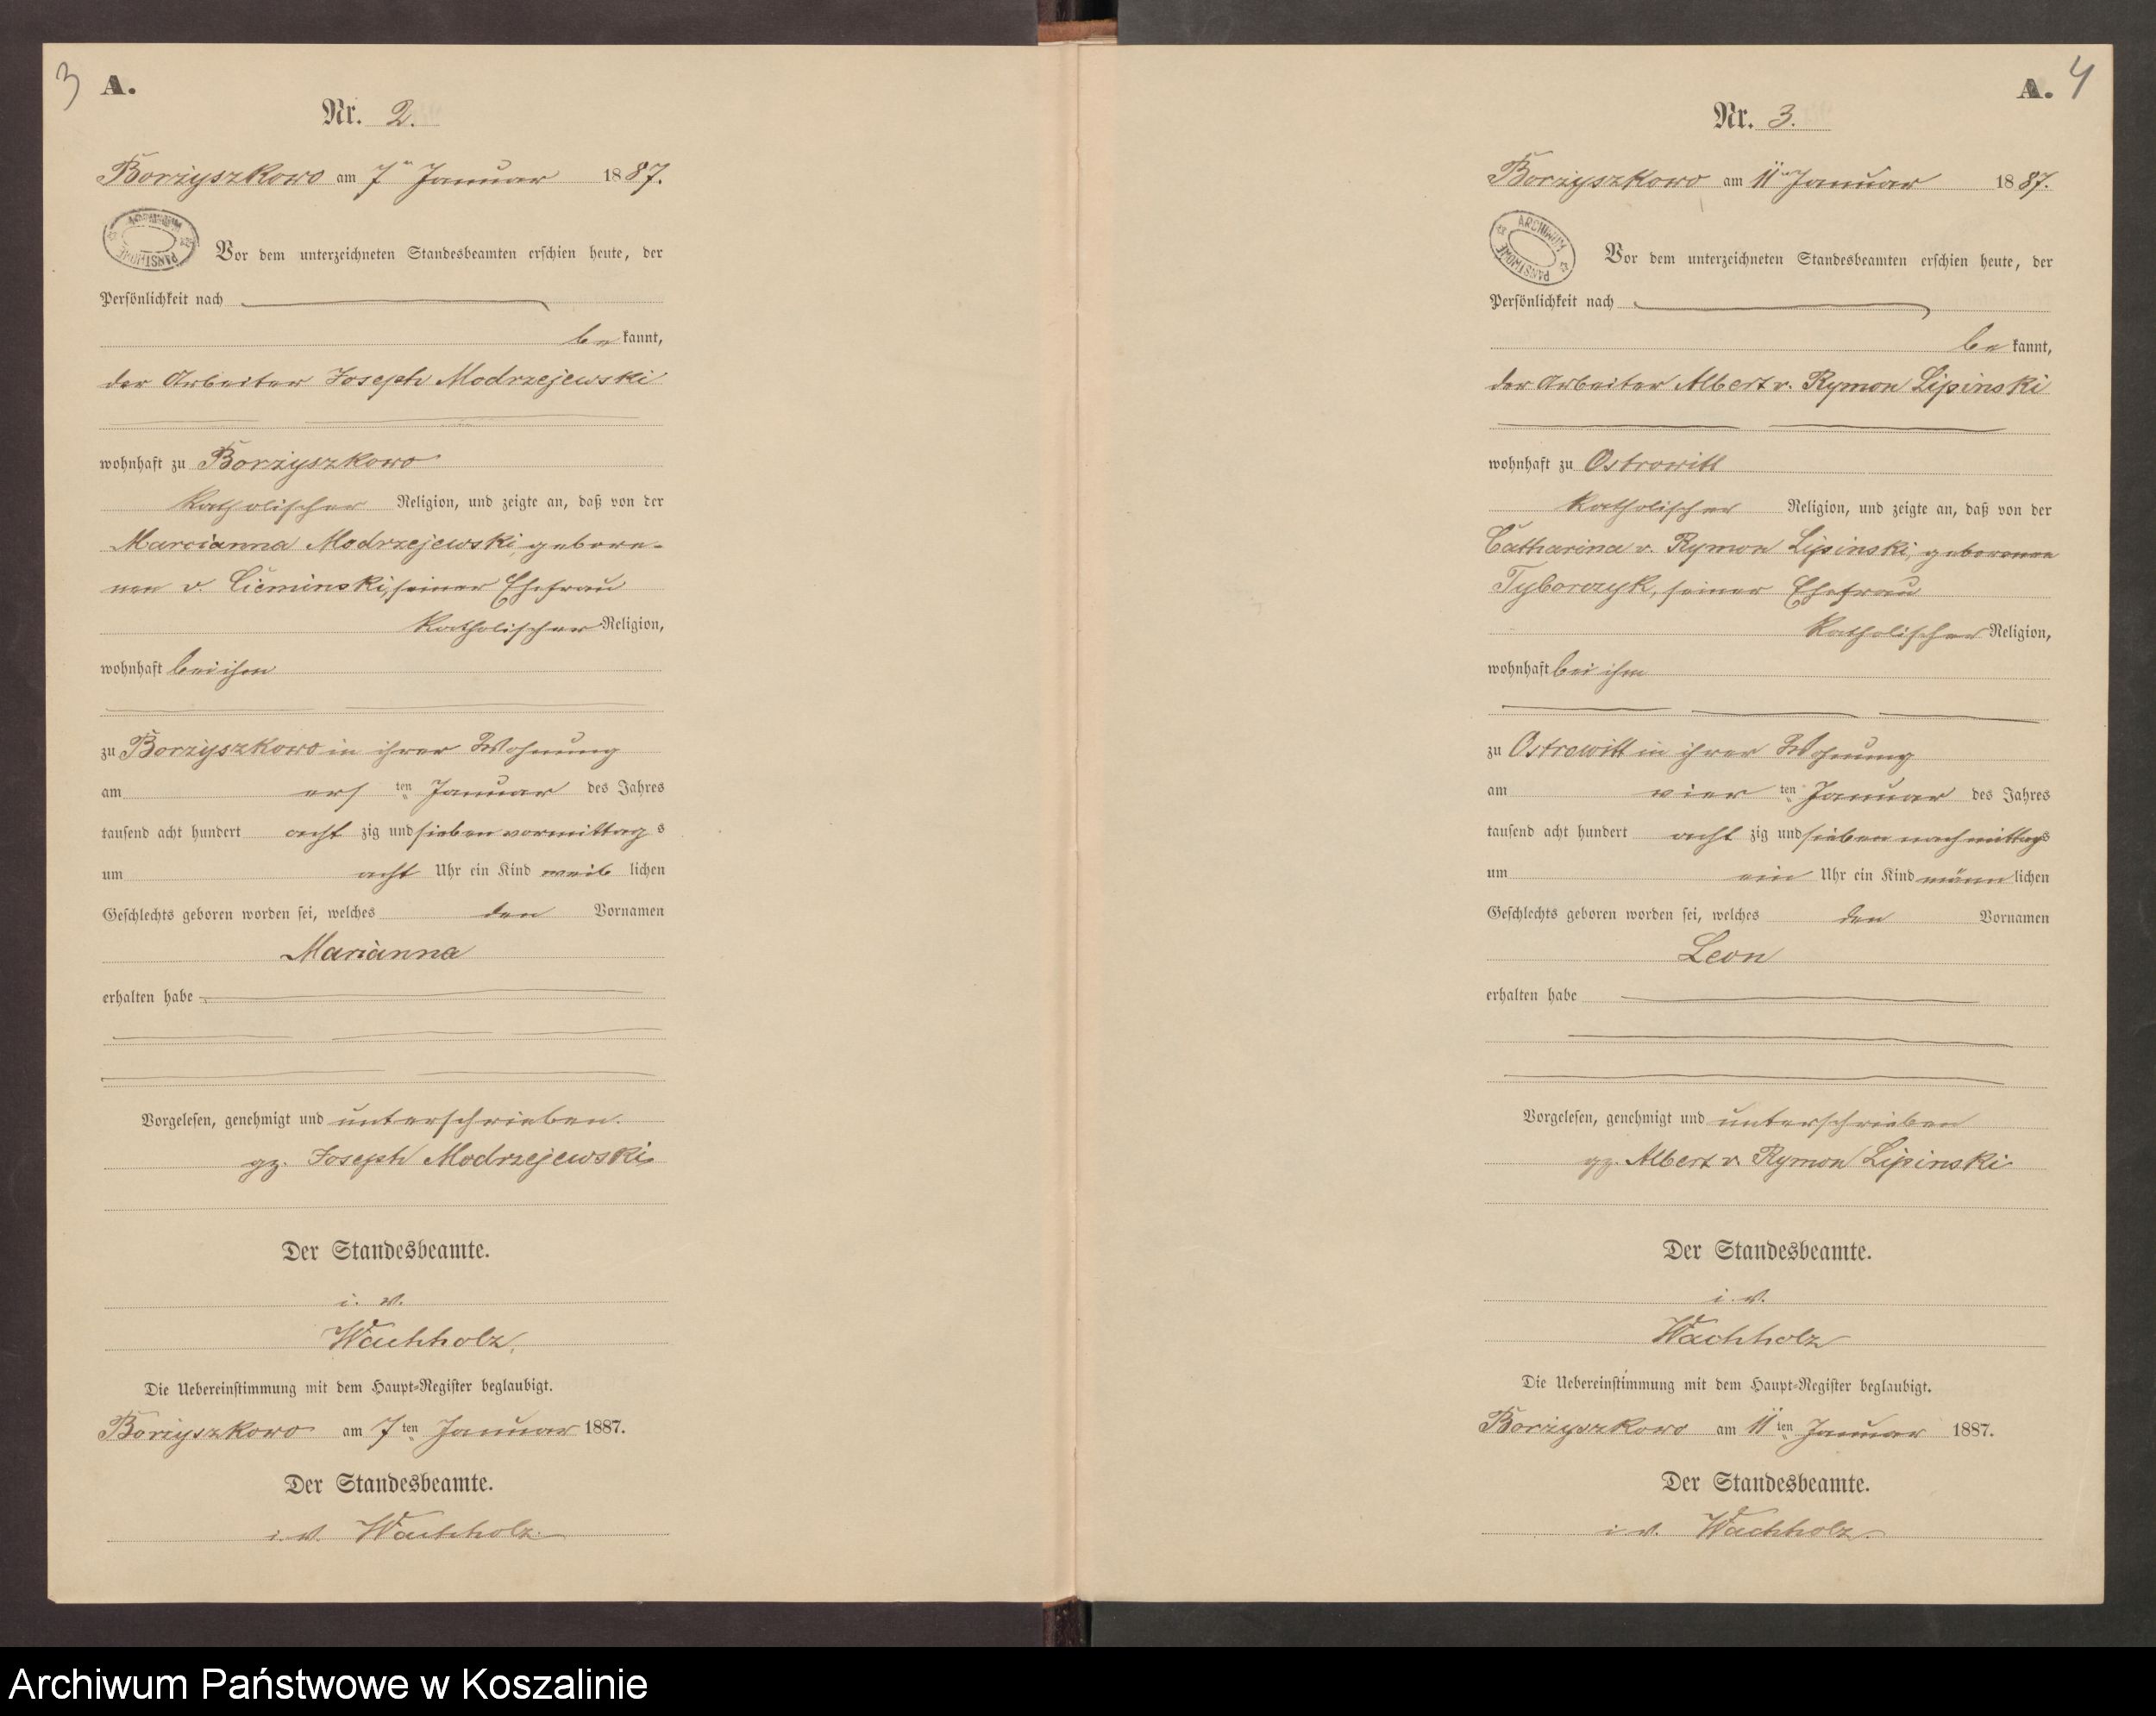 3 A.
Nr. 2.
Borzyszkowo am 7ten Januar 1887.
ARCHIWUM PAŃSTWOWE
Vor dem unterzeichneten Standesbeamten erschien heute, der
Persönlichkeit nach
be kannt,
der Arbeiter Joseph Modrzejewski
wohnhaft zu Borzyszkowo
katholischer Religion, und zeigte an, daß von der
Marcianna Modrzejewski, gebore-
nen v. Cieminski, seiner Ehefrau
katholischer Religion,
wohnhaft bei ihm
zu Borzyszkowo in ihrer Wohnung
am ers ten Januar des Jahres
tausend acht hundert acht zig und sieben vormittag s
um acht Uhr ein Kind weib lichen
Geschlechts geboren worden sei, welches den Vornamen
Marianna
erhalten habe
Vorgelesen, genehmigt und unterschrieben.
gz. Joseph Modrzejewski
Der Standesbeamte.
i. V.
Wachholz.
Die Uebereinstimmung mit dem Haupt-Register beglaubigt.
Borzyszkowo am 7 ten Januar 1887.
Der Standesbeamte.
i. V. Wachholz.
A. 4
Nr. 3.
Borzyszkowo am 11ten Januar 1887.
ARCHIWUM PAŃSTWOWE
Vor dem unterzeichneten Standesbeamten erschien heute, der
Persönlichkeit nach
be kannt,
der Arbeiter Albert v. Rymon Lipinski
wohnhaft zu Ostrowitt
katholischer Religion, und zeigte an, daß von der
Catharina v. Rymon Lipinski, geborenen
Tyborczyk, seiner Ehefrau
katholischer Religion,
wohnhaft bei ihm
zu Ostrowitt in ihrer Wohnung
am vier ten Januar des Jahres
tausend acht hundert acht zig und sieben nachmittags
um ein Uhr ein Kind männ lichen
Geschlechts geboren worden sei, welches den Vornamen
Leon
erhalten habe
Vorgelesen, genehmigt und unterschrieben
gz. Albert v. Rymon Lipinski
Der Standesbeamte.
i. V.
Wachholz
Die Uebereinstimmung mit dem Haupt-Register beglaubigt.
Borzyszkowo am 11 ten Januar 1887.
Der Standesbeamte.
i. V. Wachholz.
Archiwum Państwowe w Koszalinie